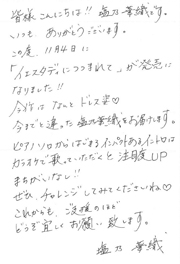 皆様こんにちは!! 塩乃華織です。
いつも ありがとうございます。
この度、11月4日に
「イエスタデイにつつまれて」が発売に
なりました!!
今作は なんと ドレス姿♡
今までと違った塩乃華織をお届けします。
ピアノソロからはじまるインパクトあるイントロは
カラオケで歌っていただくと 注目度UP
まちがいなし!!
ぜひ、チャレンジしてみてくださいね♡
これからも、ご支援のほど
どうぞ宜しくお願い致します。
塩乃 華織